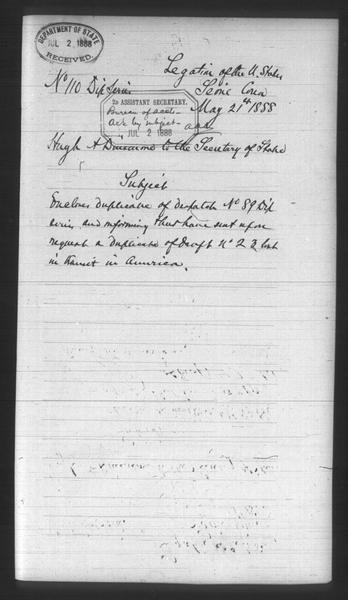 DEPARTMENT OF STATE
JUL 2 1888
RECEIVED
Legation of the U. States
No 110 Dip Series
Seoul Corea
2D ASSISTANT SECRETARY.
May 21st 1888
Bureau of accts
Ack by subject
JUL 2 1888
Hugh A Dinsmore to the Secretary of State
Subject
Encloses duplicate of despatch No 89 Dip
series and informing that have sent upon
request a duplicate of Draft No 2 lost
in transit in America.